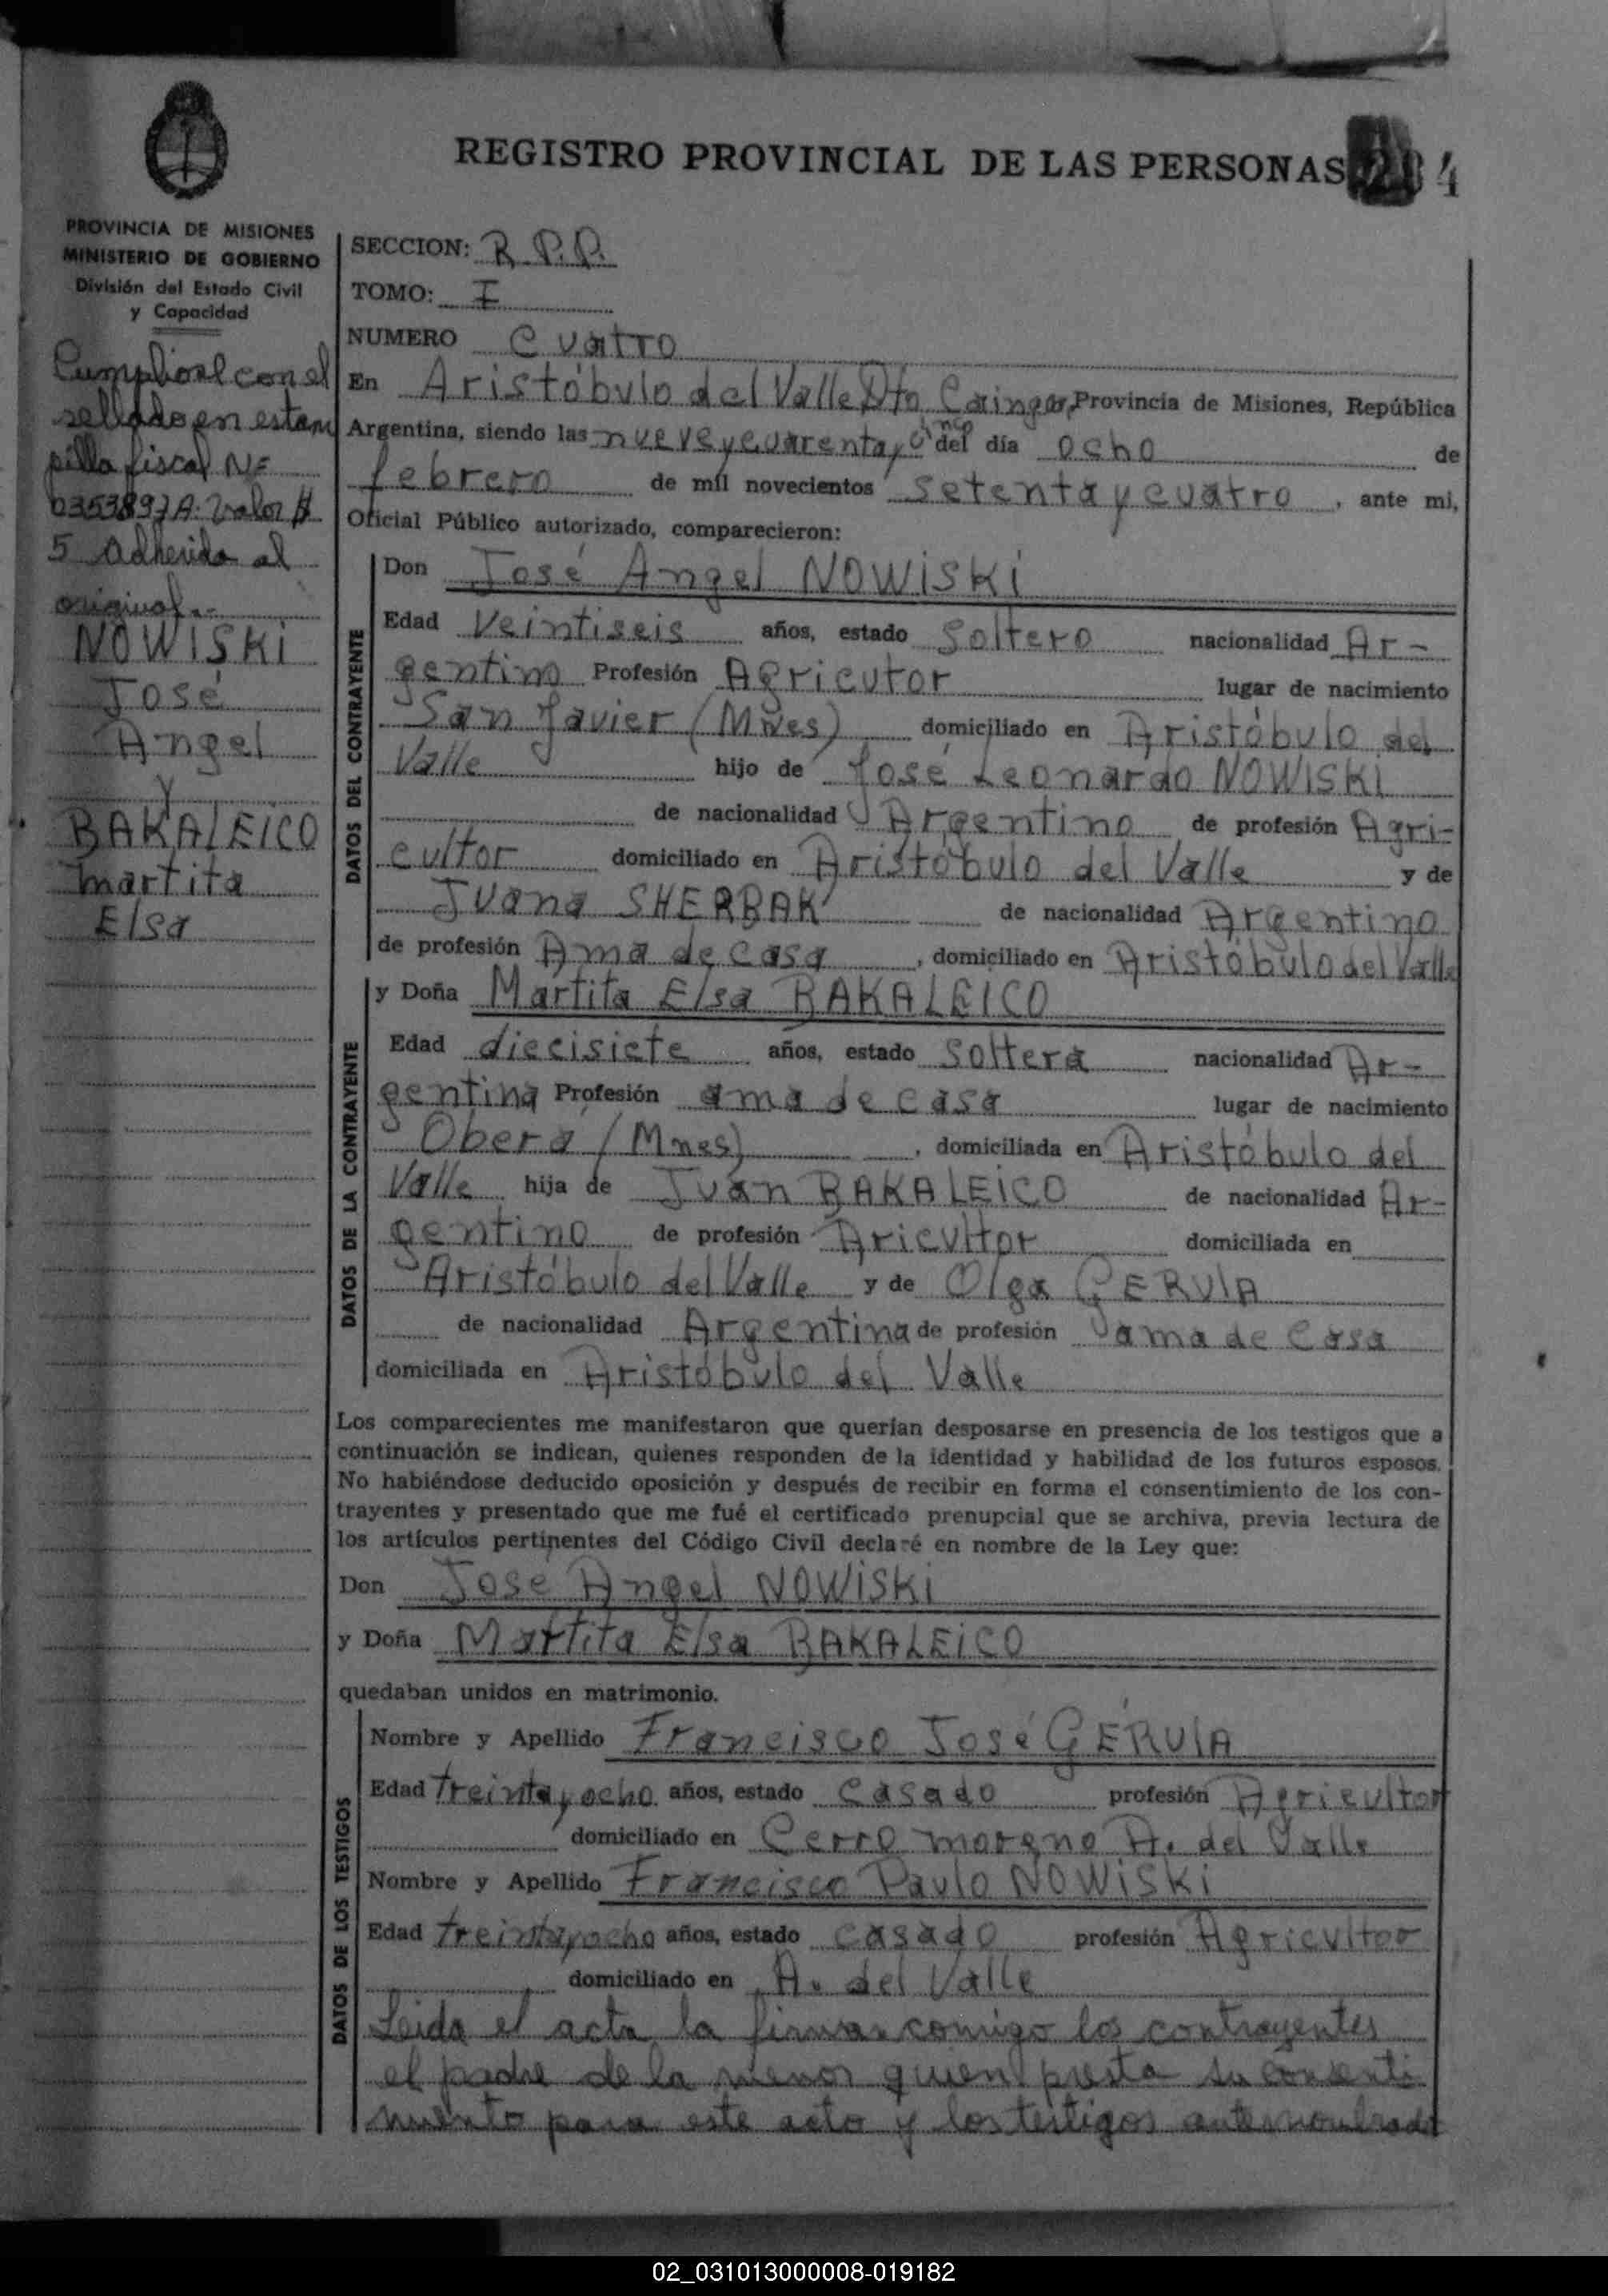 REGISTRO PROVINCIAL DE LAS PERSONAS
4
PROVINCIA DE MISIONES
MINISTERIO DE GOBIERNO
División del Estado Civil
y Capacidad
Cumplióse con el
sellado en estam
pilla fiscal Nº
0353897A. Valor $
5 Adherida al
original.-
NOWISKI
José
Angel
Y
BAKALEICO
Martita
Elsa
SECCION: R.P.P.
TOMO: I
NUMERO Cuatro
En Aristóbulo del Valle, Dto Caingas, Provincia de Misiones, República
Argentina, siendo las nueve y cuarenta y cinco del día ocho de
febrero de mil novecientos setenta y cuatro, ante mi,
Oficial Público autorizado, comparecieron:
DATOS DEL CONTRAYENTE
Don José Angel NOWISKI
Edad Veintiseis años, estado Soltero nacionalidad Ar-
gentino Profesión Agricutor lugar de nacimiento
San Javier (Mnes) domiciliado en Aristóbulo del
Valle hijo de José Leonardo NOWISKI
de nacionalidad Argentino de profesión Agri-
cultor domiciliado en Aristóbulo del Valle y de
Juana SHERBAK de nacionalidad Argentino
de profesión Ama de casa, domiciliado en Aristóbulo del Valle
DATOS DE LA CONTRAYENTE
y Doña Martita Elsa BAKALEICO
Edad diecisiete años, estado Soltera nacionalidad Ar-
gentina Profesión ama de casa lugar de nacimiento
Oberá (Mnes), domiciliada en Aristóbulo del
Valle hija de Juan BAKALEICO de nacionalidad Ar-
gentino de profesión Aricultor domiciliada en
Aristóbulo del Valle y de Olga GERULA
de nacionalidad Argentina de profesión ama de casa
domiciliada en Aristóbulo del Valle
Los comparecientes me manifestaron que querían desposarse en presencia de los testigos que a
continuación se indican, quienes responden de la identidad y habilidad de los futuros esposos.
No habiéndose deducido oposición y después de recibir en forma el consentimiento de los con-
trayentes y presentado que me fué el certificado prenupcial que se archiva, previa lectura de
los artículos pertinentes del Código Civil declaré en nombre de la Ley que:
Don José Angel NOWISKI
y Doña Martita Elsa BAKALEICO
quedaban unidos en matrimonio.
DATOS DE LOS TESTIGOS
Nombre y Apellido Francisco José GERULA
Edad treinta y ocho años, estado Casado profesión Agricultor
domiciliado en Cerro moreno A. del Valle
Nombre y Apellido Francisco Paulo NOWISKI
Edad treinta y ocho años, estado casado profesión Agricultor
domiciliado en A. del Valle
Leida el acta la firman comigo los contrayentes
el padre de la menor quien presta su consenti
miento para este acto y los testigos antenombrado
02_031013000008-019182